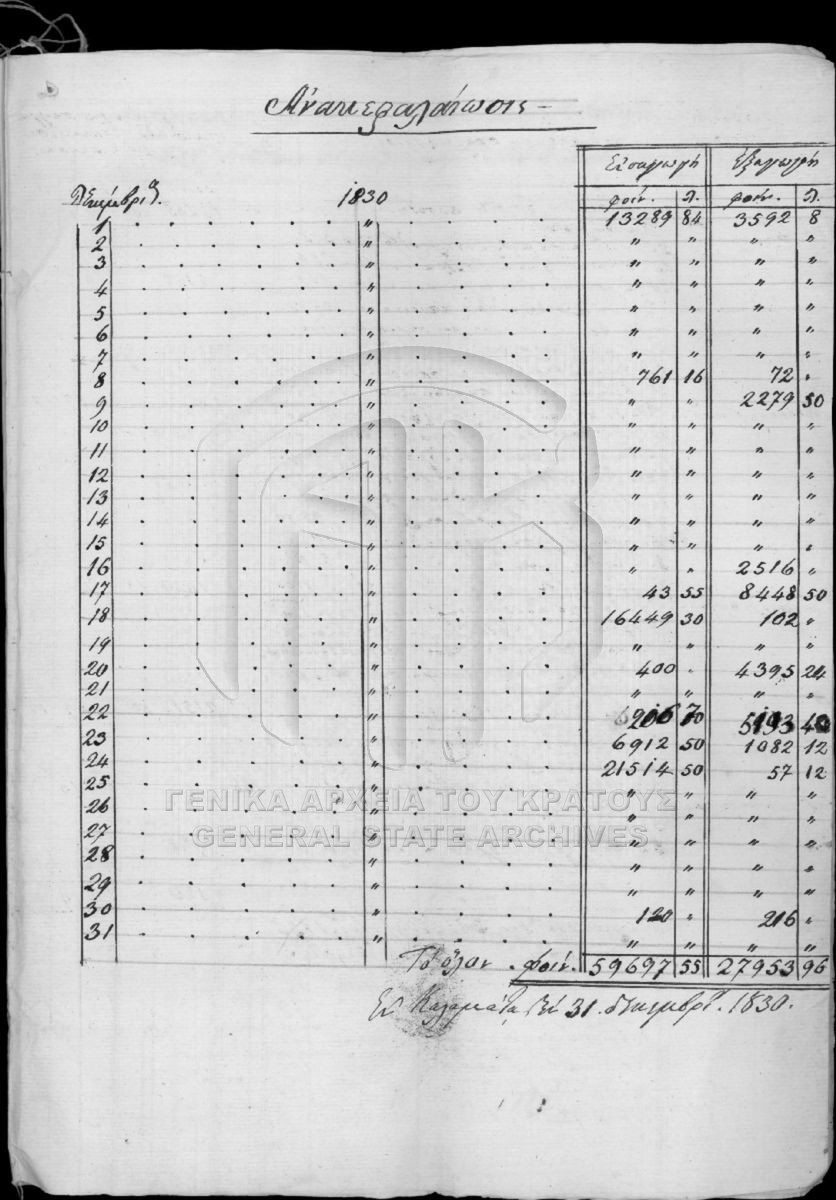 Ανακεφαλαίωσις
Εισαγωγή Εξαγωγή
Δεκεμβρίου. 1830 φοίν. λ. φοίν. λ.
1 . . . . . . " . . . . . 13289 84 3592 8
2 . . . . . . " . . . . . " " " "
3 . . . . . . " . . . . . " " " "
4 . . . . . . " . . . . . " " " "
5 . . . . . . " . . . . . " " " "
6 . . . . . . " . . . . . " " " "
7 . . . . . . " . . . . . " " " "
8 . . . . . . " . . . . . 761 16 72 "
9 . . . . . . " . . . . . " " 2279 50
10 . . . . . . " . . . . . " " " "
11 . . . . . . " . . . . . " " " "
12 . . . . . . " . . . . . " " " "
13 . . . . . . " . . . . . " " " "
14 . . . . . . " . . . . . " " " "
15 . . . . . . " . . . . . " " " "
16 . . . . . . " . . . . . " " 2516 "
17 . . . . . . " . . . . . 43 55 8448 50
18 . . . . . . " . . . . . 16449 30 102 "
19 . . . . . . " . . . . . " " " "
20 . . . . . . " . . . . . 400 " 4395 24
21 . . . . . . " . . . . . " " " "
22 . . . . . . " . . . . . 206 70 5193 40
23 . . . . . . " . . . . . 6912 50 1082 12
24 . . . . . . " . . . . . 21514 50 57 12
25 . . . . . . " . . . . . " " " "
26 . . . . . . " . . . . . " " " "
27 . . . . . . " . . . . . " " " "
28 . . . . . . " . . . . . " " " "
29 . . . . . . " . . . . . " " " "
30 . . . . . . " . . . . . 120 " 216 "
31 . . . . . . " . . . . . " " " "
Το όλον . φοίν. 59697 55 27953 96
Εν Καλαμάτα τη 31. δεκεμβρ. 1830.
ΓΕΝΙΚΑ ΑΡΧΕΙΑ ΤΟΥ ΚΡΑΤΟΥΣ
GENERAL STATE ARCHIVES